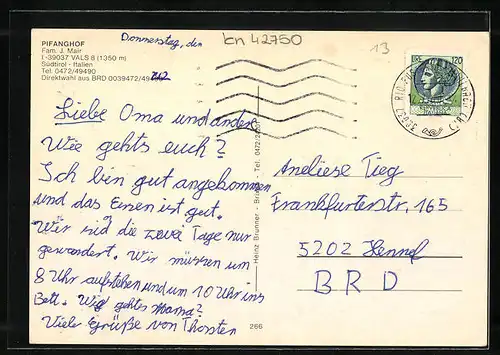 PIFANGHOF
Fam. J. Mair
I-39037 VALS 8 (1350 m)
Südtirol - Italien
Tel. 0472/49490
Direktwahl aus BRD 0039472/49
Donnerstag, den
kn 42750
13
LIRE 120
Liebe Oma und andere
Wie gehts euch?
Ich bin gut angekommen
und das Essen ist gut.
Wir sid die zwei Tage nur
gewandert. Wir müssen um
8 Uhr aufstehen und um 10 Uhr ins
Bett. Wie gehts Mama?
Viele Grüße von Thorsten
Heinz Brunner - Tel. 0472/2
Aneliese Tieg
Frankfurterstr. 165
5202 Hennef
BRD
266